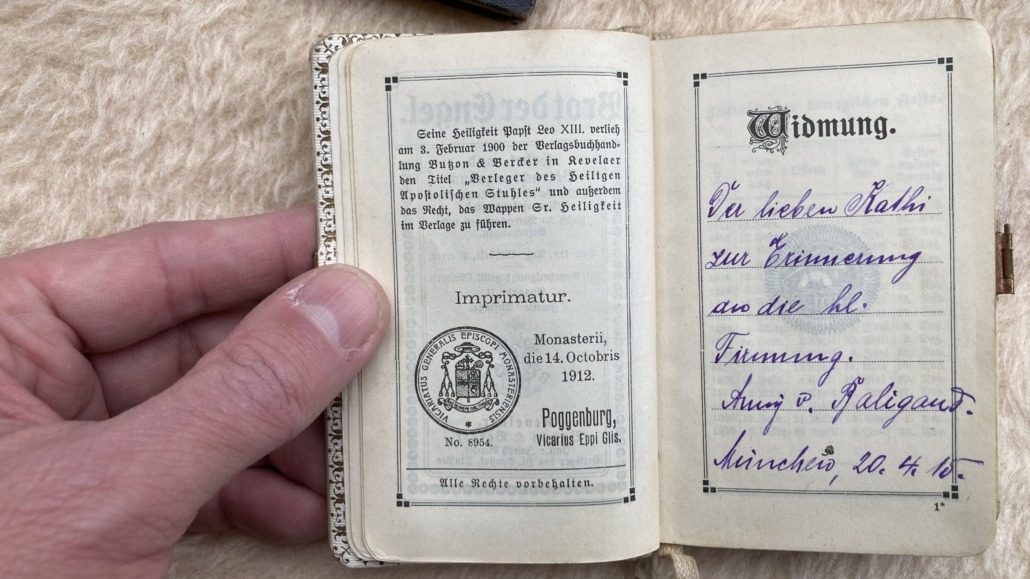 Seine Heiligkeit Papst Leo XIII. verlieh
am 3. Februar 1900 der Verlagsbuchhand-
lung Butzon & Bercker in Kevelaer
den Titel „Verleger des Heiligen
Apostolischen Stuhles“ und außerdem
das Recht, das Wappen Sr. Heiligkeit
im Verlage zu führen.
Imprimatur.
VICARIATUS GENERALIS EPISCOPI MONASTERIENSIS
Monasterii,
die 14. Octobris
1912.
No. 8954.
Poggenburg,
Vicarius Eppi Glis.
Alle Rechte vorbehalten.
Widmung.
Der lieben Kathi
zur Erinnerung
an die hl.
Firmung.
v.
München, 20. 4. 15.
1*
Brot der Engel.